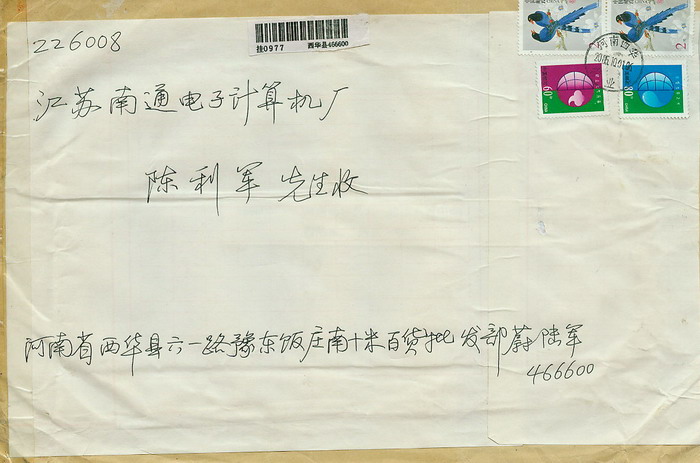 226008
挂0977 西华县466600
江苏南通电子计算机厂
陈利军 先生收
河南省西华县六一路豫东饭庄南十米百货批发部蔚陆军
466600
河南西华
2005.10.01
业
2
2
60分
80分